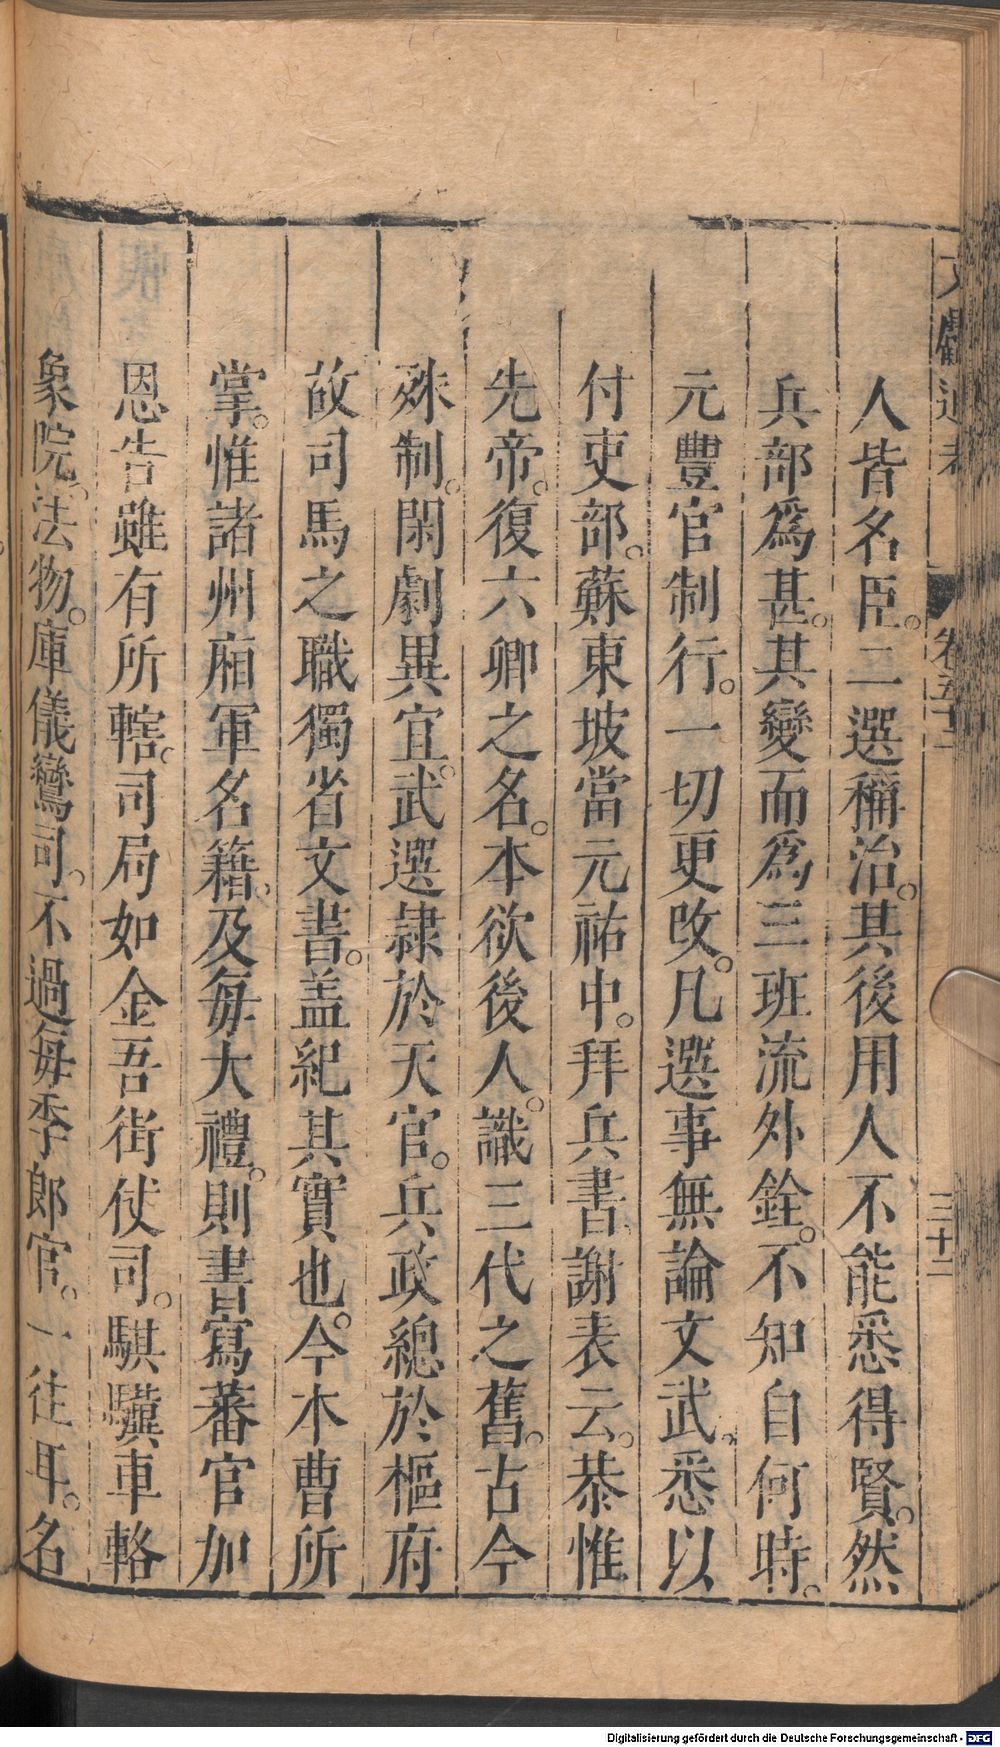 文獻通考 卷五十二 三十二
人皆名臣。二選稱治。其後用人不能悉得賢。然
兵部爲甚。其變而爲三班流外銓。不知自何時。
元豐官制行。一切更改。凡選事無論文武。悉以
付吏部。蘇東坡當元祐中。拜兵書謝表云。恭惟
先帝。復六卿之名。本欲後人。識三代之舊。古今
殊制。閑劇異宜。武選隷於天官。兵政總於樞府
故司馬之職獨省文書。盖紀其實也。今本曹所
掌。惟諸州廂軍名籍。及每大禮。則書寫蕃官加
恩告雖有所轄。司局如金吾街仗司。騏驥車輅
象院。法物。庫儀鸞司。不過每季郎官。一往耳。名
Digitalisierung gefördert durch die Deutsche Forschungsgemeinschaft - DFG